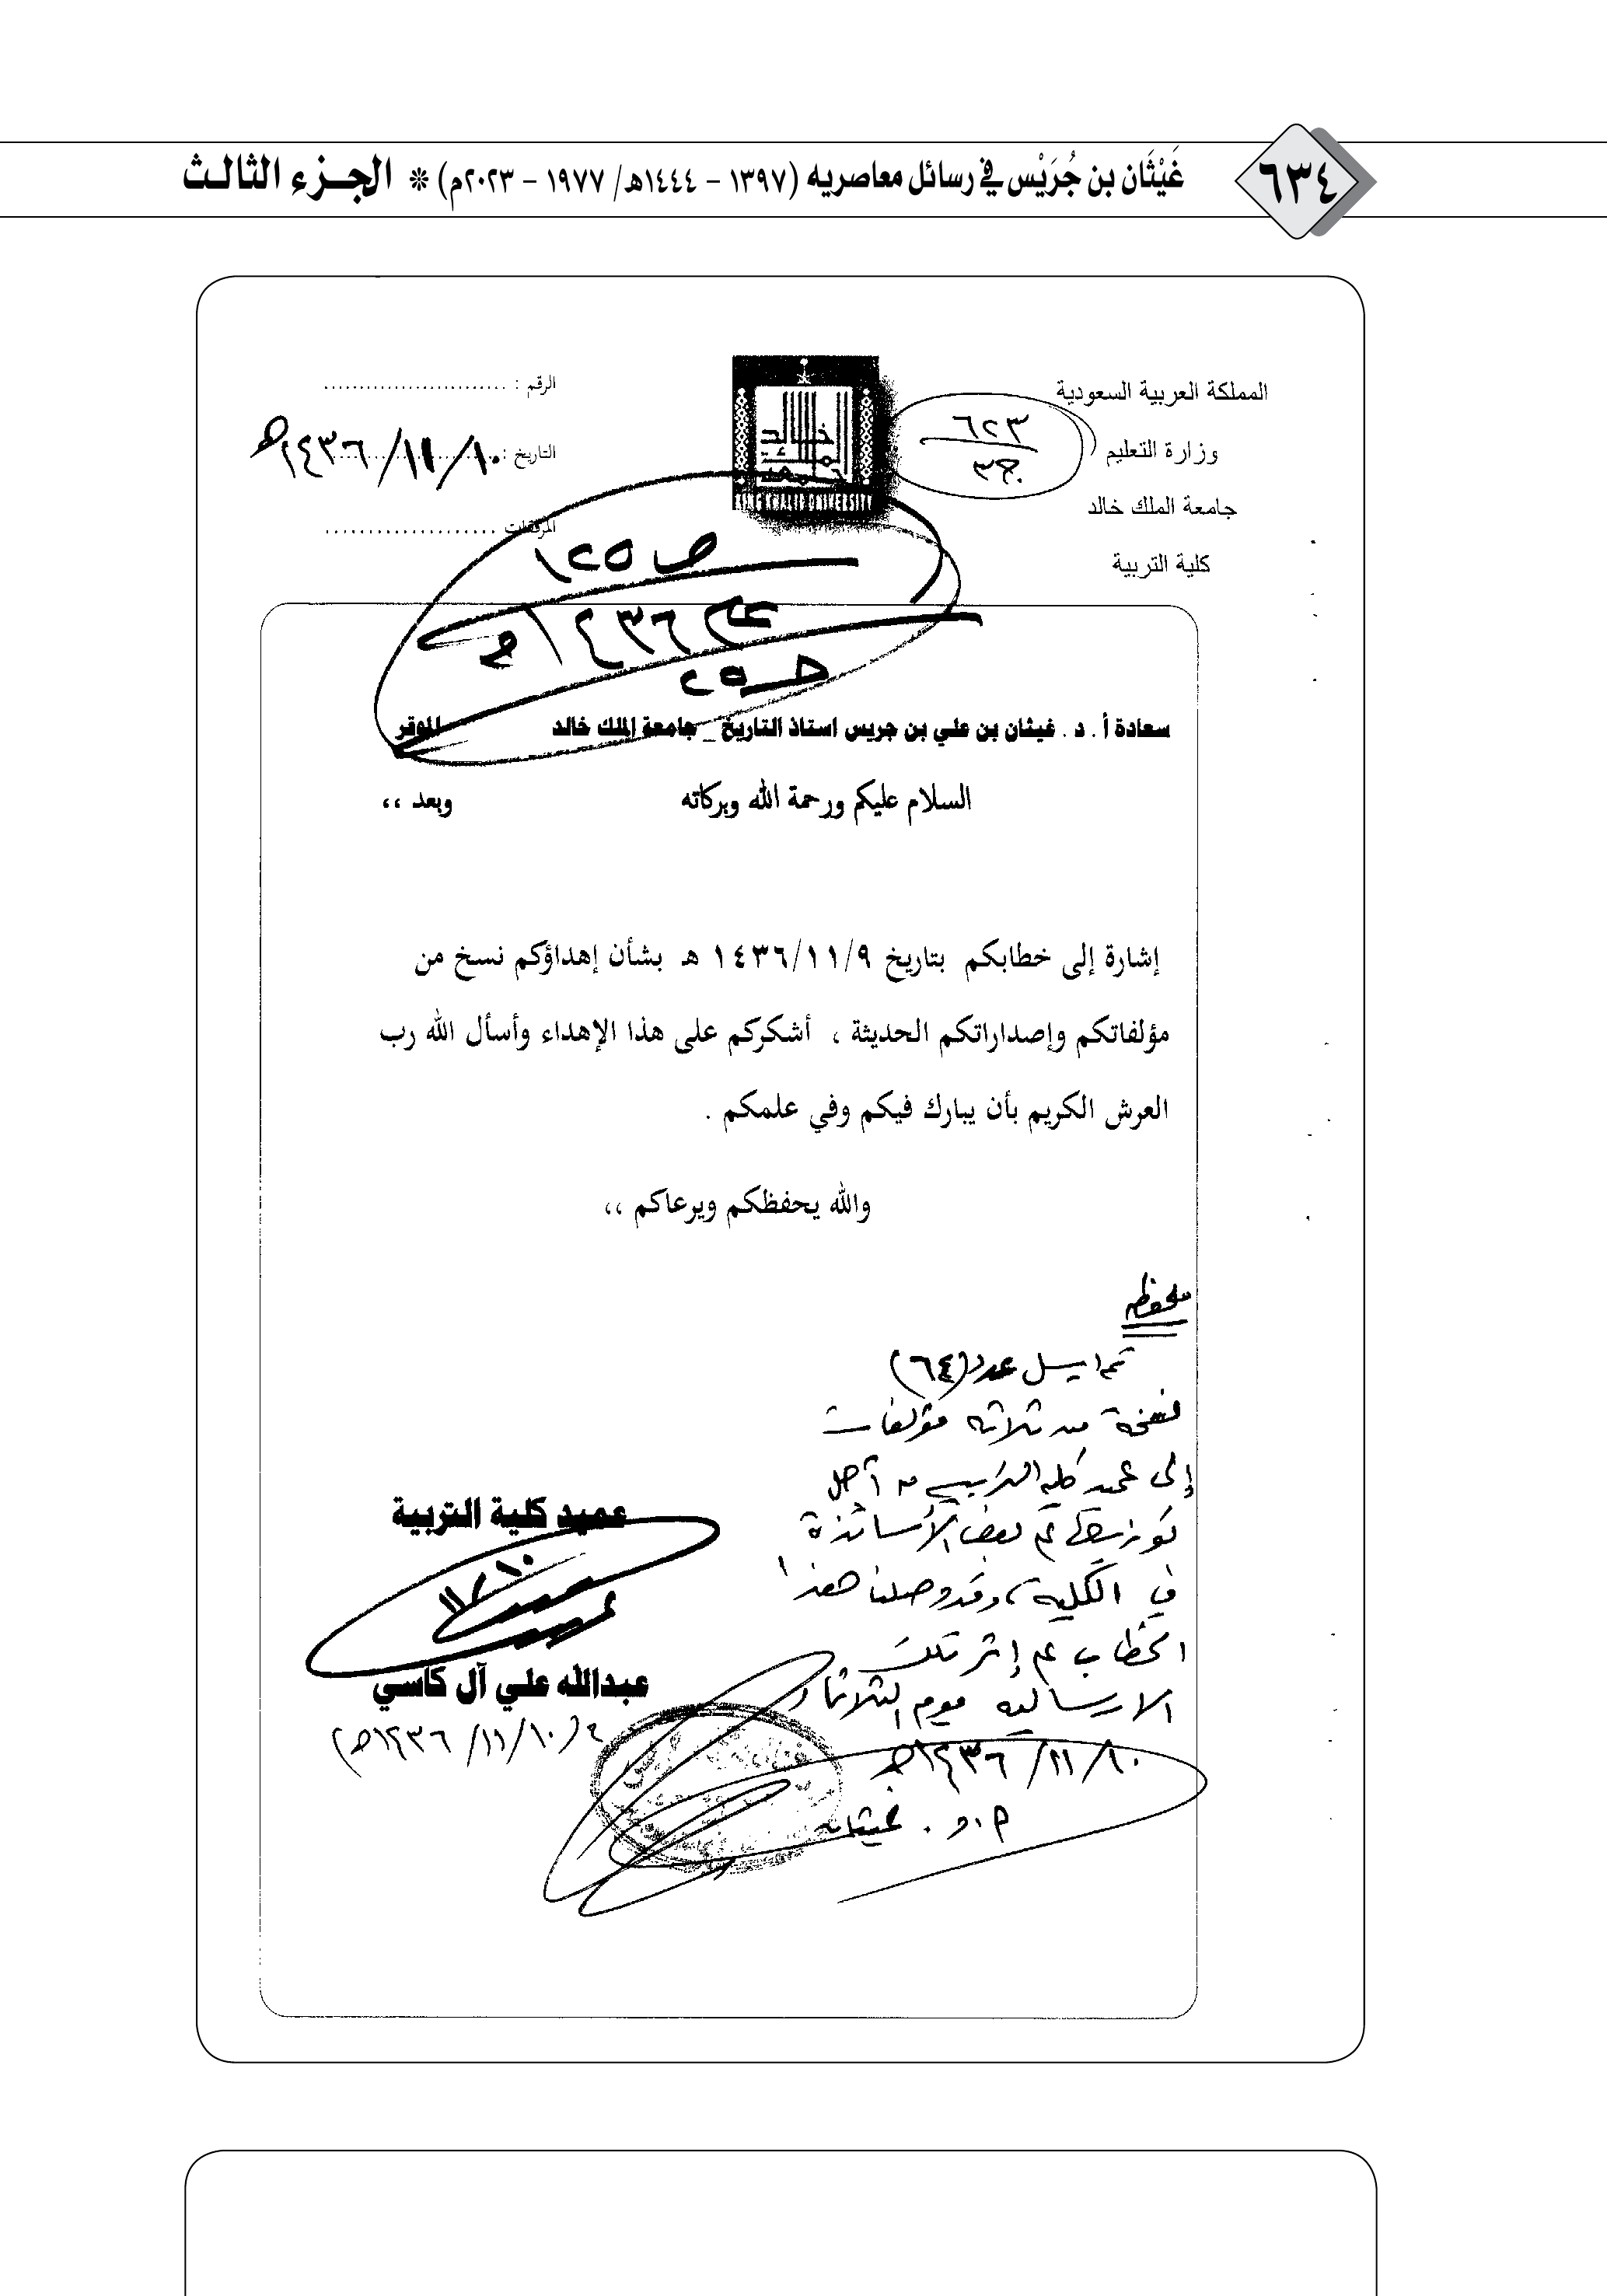 ٦٣٤
غَيْثَان بن جُرَيْس في رسائل معاصريه (١٣٩٧ - ١٤٤٤هـ/ ١٩٧٧ - ٢٠٢٣م) * الجزء الثالث
المملكة العربية السعودية
وزارة التعليم
جامعة الملك خالد
كلية التربية
٦٢٣
ج٣
KING KHALID UNIVERSITY
الرقم : ..........................
التاريخ : ١٤٣٦/١١/١٠هـ
المرفقات ....................
ص ١٢٥
عام ١٤٣٦هـ
ج٢٥
سعادة أ . د . غيثان بن علي بن جريس استاذ التاريخ _ جامعة الملك خالد الموقر
السلام عليكم ورحمة الله وبركاته وبعد ،،
إشارة إلى خطابكم بتاريخ ١٤٣٦/١١/٩ هـ بشأن إهداؤكم نسخ من
مؤلفاتكم وإصداراتكم الحديثة ، أشكركم على هذا الإهداء وأسأل الله رب
العرش الكريم بأن يبارك فيكم وفي علمكم .
والله يحفظكم ويرعاكم ،،
ملحوظة
تم ارسال عدد (٦٤)
نسخة من ثلاثة مؤلفات
إلى عميد كلية التربية من أجل
توزيعها على بعض الأساتذة
في الكلية، وقد وصلنا هذا
الخطاب على إثر تلك
الارسالية يوم الثلاثاء
١٤٣٦/١١/١٠هـ
أ.د. غيثان
عميد كلية التربية
١١/١٠
عبدالله علي آل كاسي
(١٤٣٦/١١/١٠هـ)